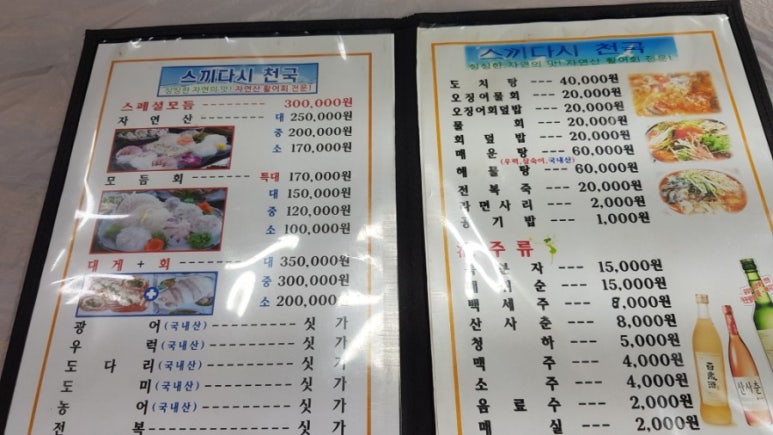 스끼다시 천국
싱싱한 자연의 맛! 자연산 활어회 전문!
스페셜모듬 ------- 300,000원
자 연 산 대 250,000원
중 200,000원
소 170,000원
모 듬 회 특대 170,000원
대 150,000원
중 120,000원
소 100,000원
대 게 + 회 대 350,000원
중 300,000원
소 200,000원
광 어 (국내산) ---------- 싯 가
우 럭 (국내산) ---------- 싯 가
도 다 리 (국내산) ---------- 싯 가
도 미 (국내산) ---------- 싯 가
농 어 (국내산) ---------- 싯 가
전 복 ---------- 싯 가
스끼다시 천국
싱싱한 자연의 맛! 자연산 활어회 전문!
도 치 탕 --- 40,000원
오징어물회 --- 20,000원
오징어회덮밥 --- 20,000원
물 회 --- 20,000원
회 덮 밥 --- 20,000원
매 운 탕 --- 60,000원
(우럭,삼숙이,국내산)
해 물 탕 --- 60,000원
전 복 죽 --- 20,000원
라 면 사 리 --- 2,000원
공 기 밥 --- 1,000원
주 류
자 --- 15,000원
순 --- 15,000원
백 세 주 --- 8,000원
산 사 춘 --- 8,000원
청 하 --- 5,000원
맥 주 --- 4,000원
소 주 --- 4,000원
음 료 수 --- 2,000원
매 실 --- 2,000원
百歲酒
산사춘